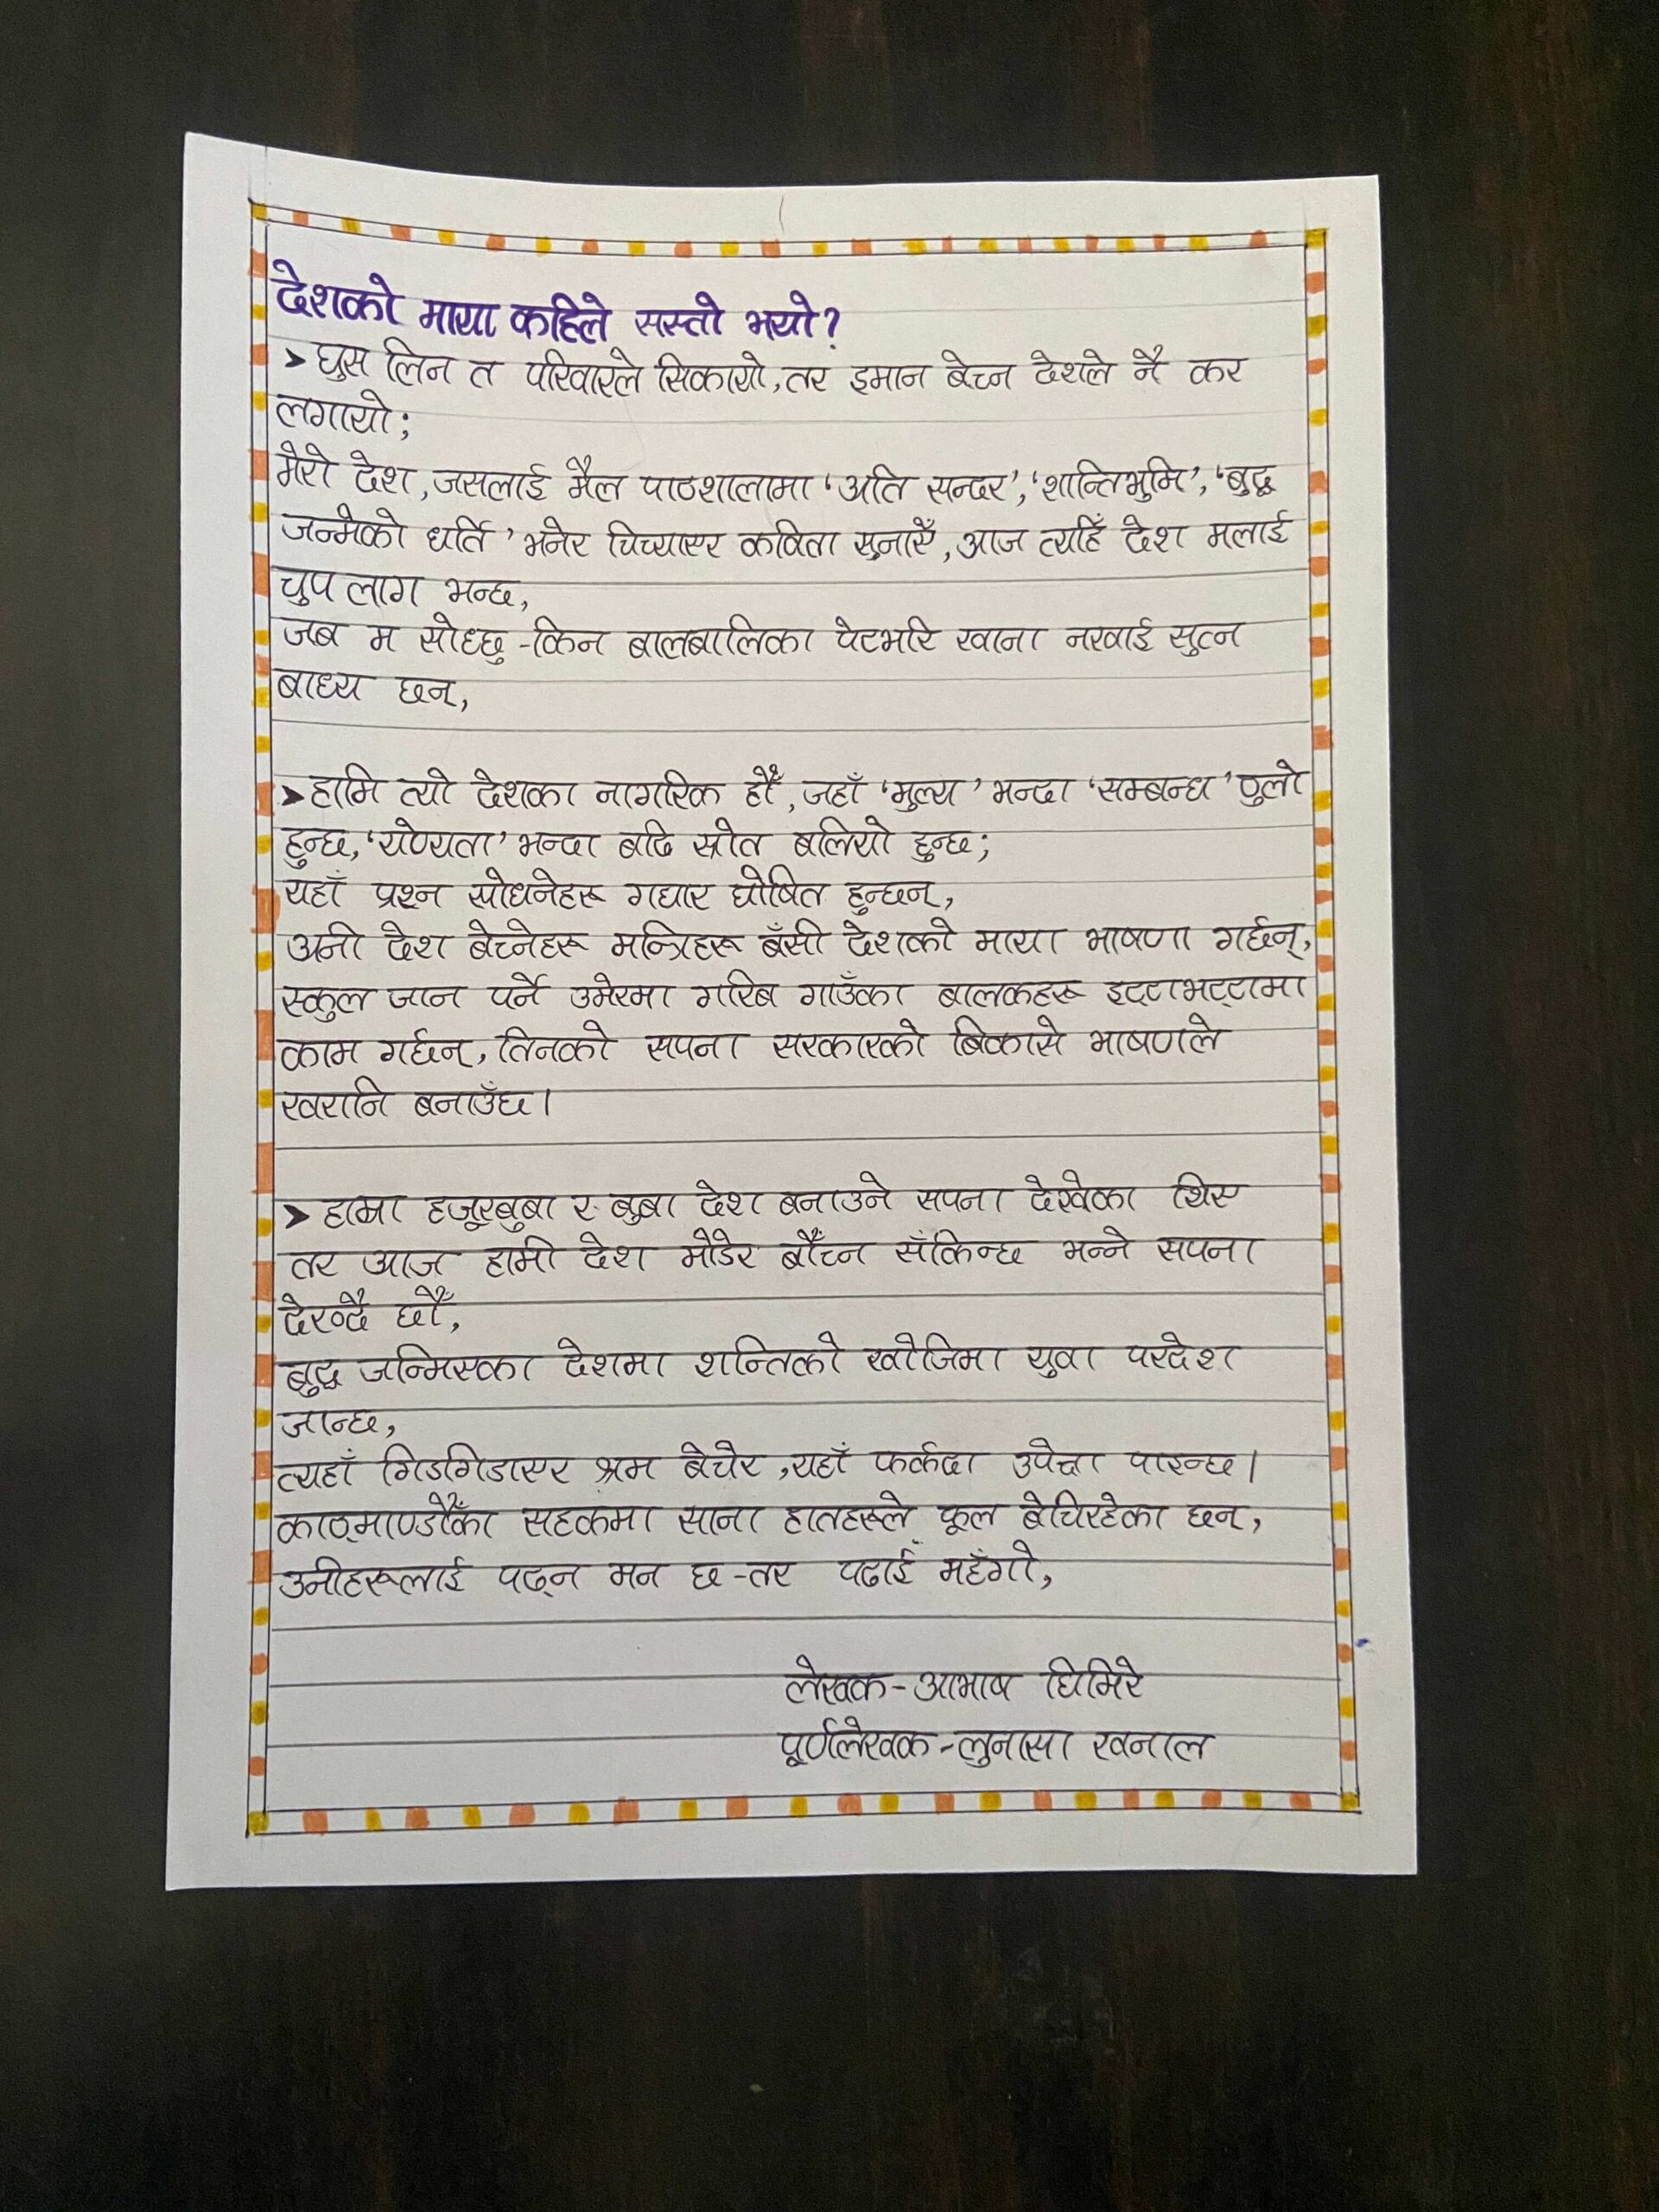 देशको माया कहिले सस्तो भयो?
➤ घुस लिन त परिवारले सिकायो, तर इमान बेच्न देशले नै कर
लगायो;
मेरो देश, जसलाई मैल पाठशालामा 'अति सन्दर', 'शान्तिभुमि', 'बुद्ध
जन्मेको धर्ति' भनेर चिच्याएर कविता सुनाएँ, आज त्यहिँ देश मलाई
चुप लाग भन्छ,
जब म सोध्छु - किन बालबालिका पेटभरि खाना नखाई सुत्न
बाध्य छन्,
➤ हामि त्यो देशका नागरिक हौँ, जहाँ 'मुल्य' भन्दा 'सम्बन्ध' ठुलो
हुन्छ, 'योग्यता' भन्दा बढि स्रोत बलियो हुन्छ;
यहाँ प्रश्न सोधनेहरू गद्दार घोषित हुन्छन्,
अनी देश बेच्नेहरू मन्त्रिहरू बँसी देशको माया भाषणा गर्छन्,
स्कुल जान पर्ने उमेरमा गरिब गाउँका बालकहरू इट्टाभट्टामा
काम गर्छन्, तिनको सपना सरकारको बिकासे भाषणले
खरानि बनाउँछ।
➤ हाम्रा हजूरबुबा र बुबा देश बनाउने सपना देखेका थिए
तर आज हामी देश मोडेर बाँच्न सँकिन्छ भन्ने सपना
देख्दै छौँ,
बुद्ध जन्मिएका देशमा शन्तिको खोजिमा युवा परदेश
जान्छ,
त्यहाँ गिडगिडाएर श्रम बेचेर, यहाँ फर्कदा उपेक्षा पाइन्छ।
काठ्माण्डौँका सहकमा साना हातहरूले फूल बेचिरहेका छन्,
उनीहरूलाई पढ्न मन छ - तर पढाई महँगो,
लेखक - आभाष घिमिरे
पूर्णलेखक - लुनासा खनाल